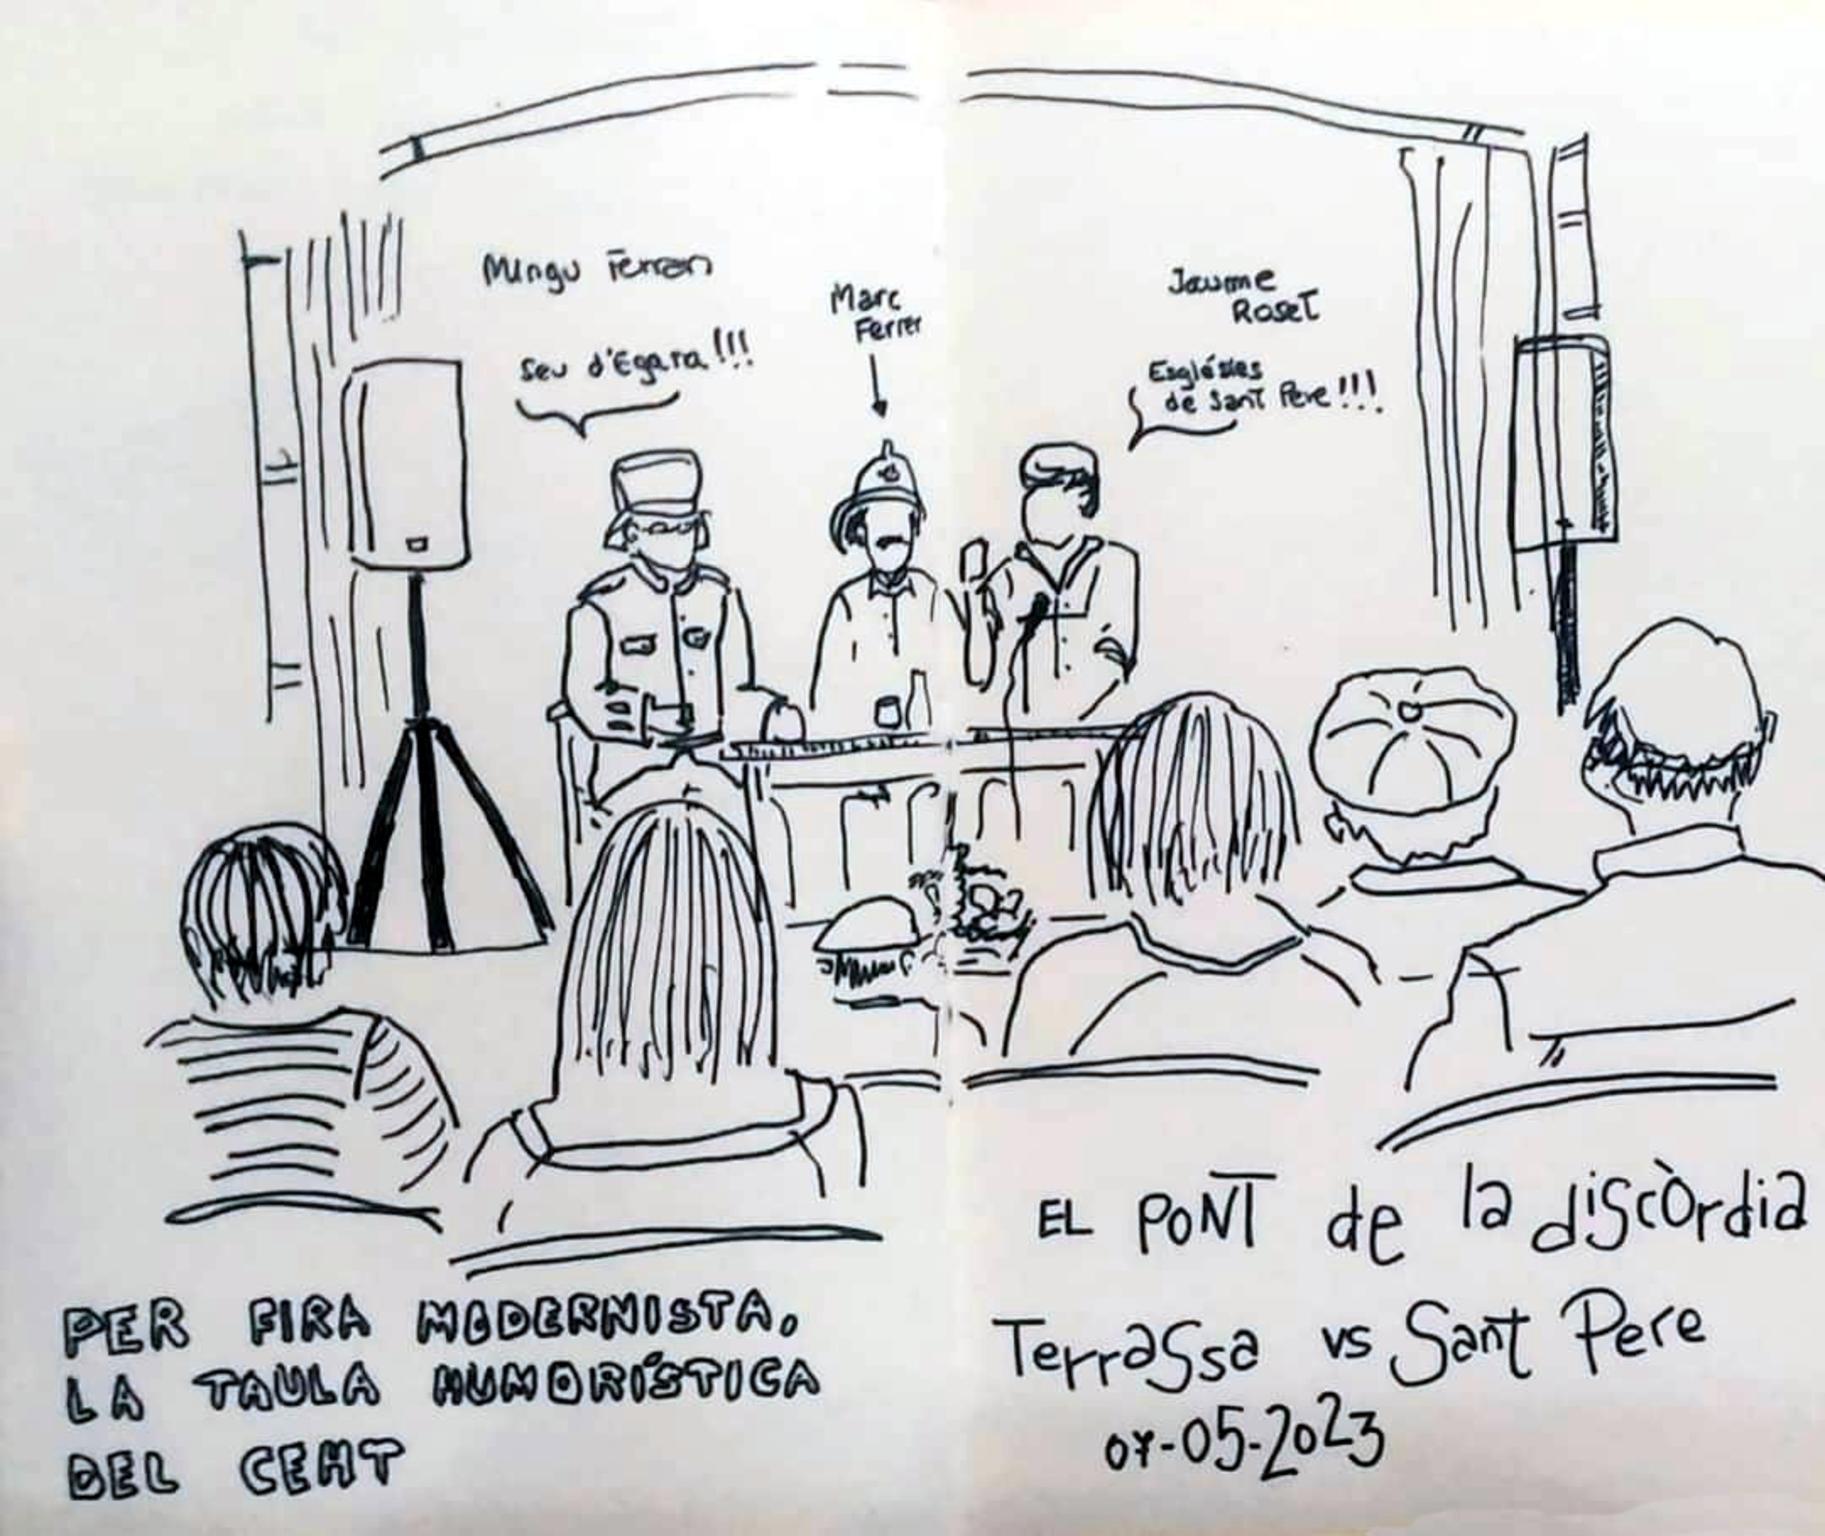 Mingu Ferran
Seu d'Egara!!!
Marc
Ferrer
Jaume
Roset
Esglésies
de Sant Pere!!!
PER FIRA MODERNISTA,
LA TAULA HUMORÍSTICA
DEL CEHT
EL PONT de la discòrdia
Terrassa vs Sant Pere
07-05-2023